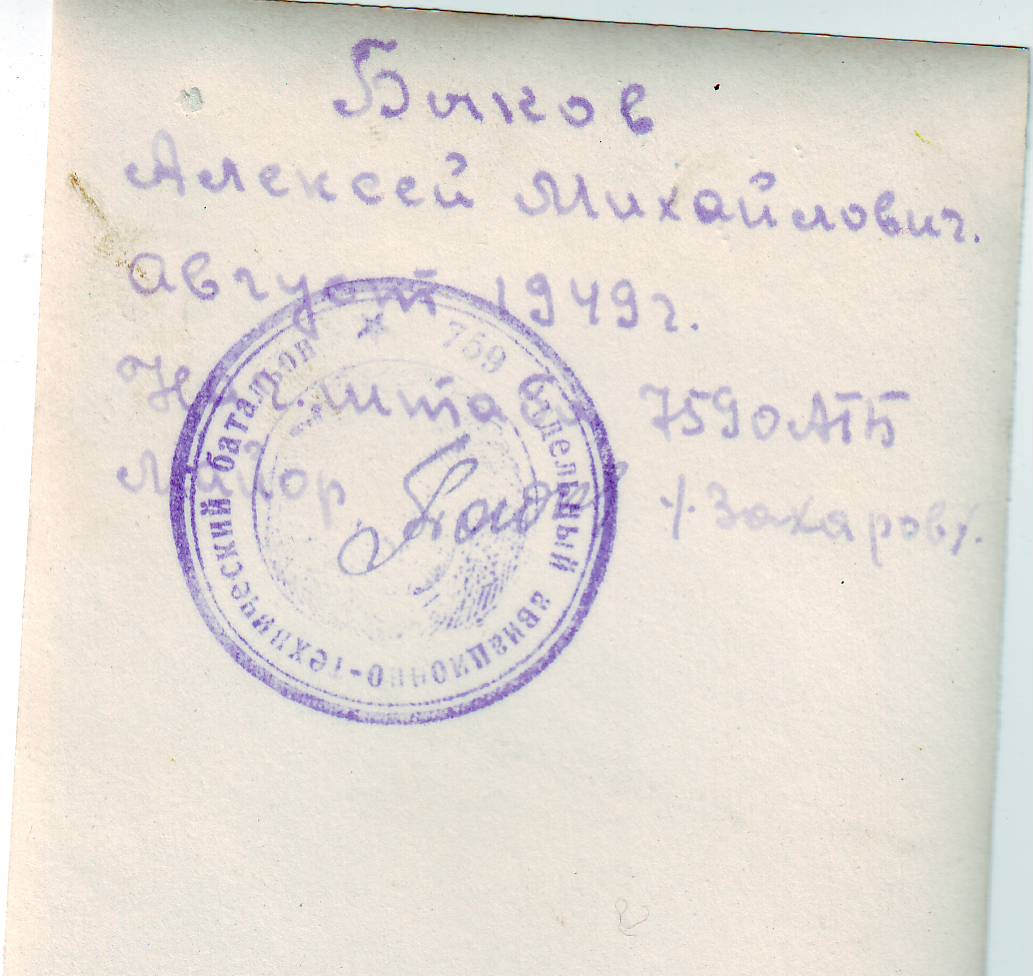 Быков
Алексей Михайлович.
Август 1949г.
Нач. штаба 759 оАТБ
Майор /. Захаров/.
759 отдельный авиационно-технический батальон